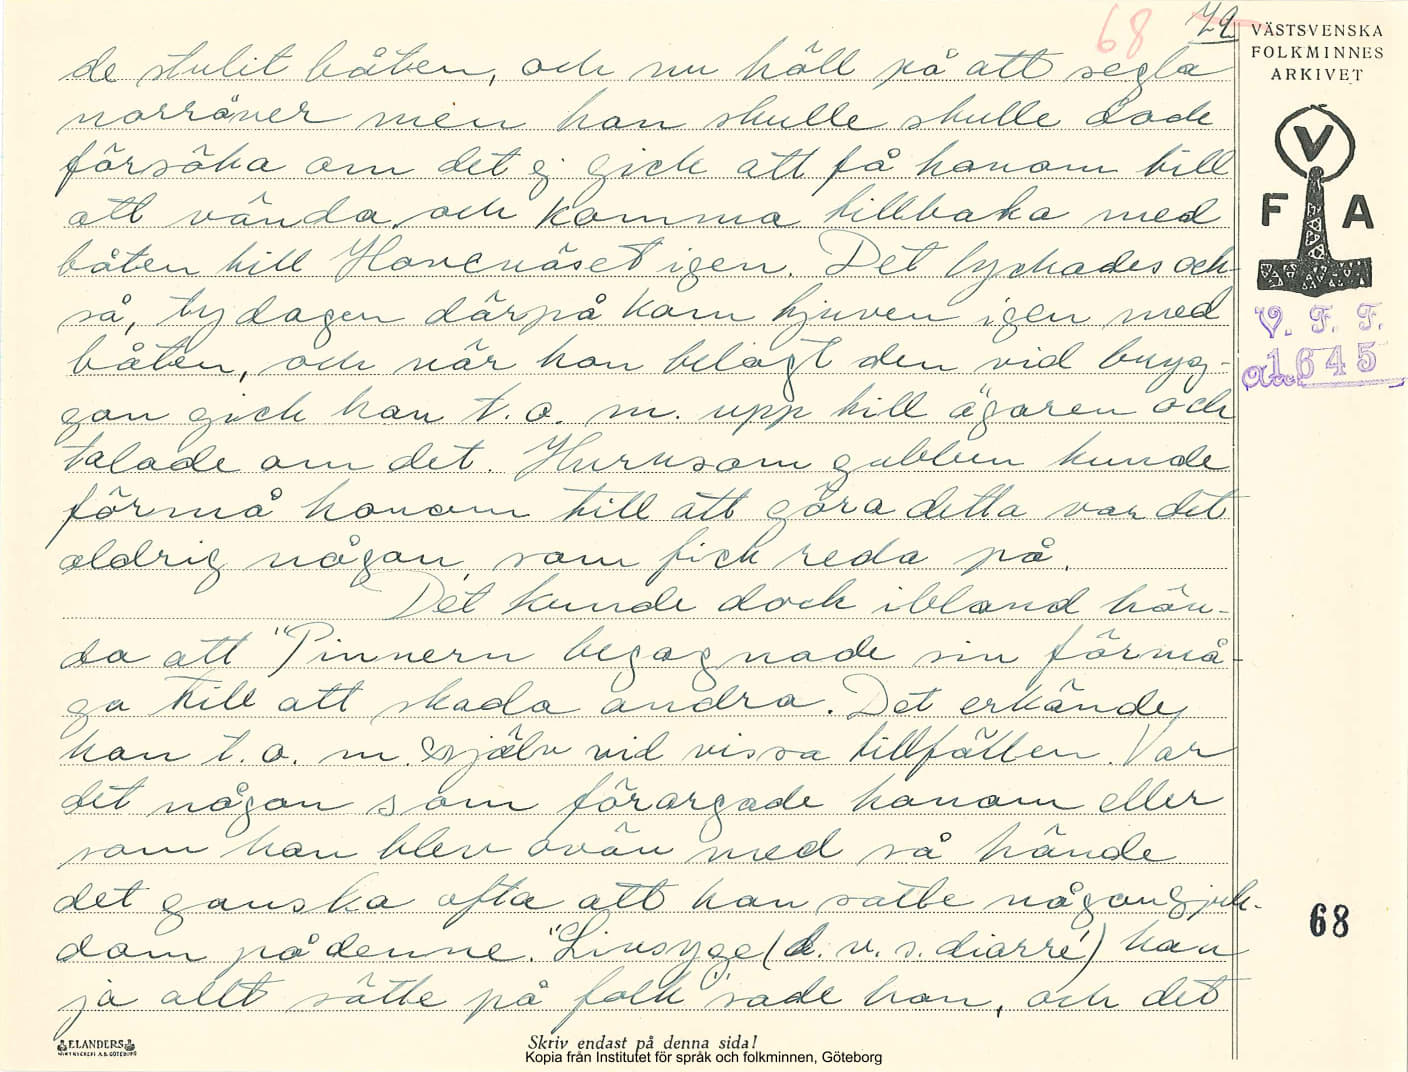 68 72
VÄSTSVENSKA
FOLKMINNES
ARKIVET
V
F A
V. F. F.
1645
de stulit båten, och nu höll på att segla
norröver men han skulle skulle dock
försöka om det ej gick att få honom till
att vända och komma tillbaka med
båten till Hovenäset igen. Det lyckades ock-
så, ty dagen därpå kom tjuven igen med
båten, och när han belagt den vid bryg-
gan gick han t. o. m. upp till ägaren och
talade om det. Hurusom gubben kunde
förmå honom till att göra detta var det
aldrig någon, som fick reda på.
Det kunde dock ibland hän-
da att "Pinnern begagnade sin förmå-
ga till att skada andra. Det erkände
han t. o. m. själv vid vissa tillfällen. Var
det någon som förargade honom eller
som han blev ovän med så hände
det ganska ofta att han satte någon sjuk-
dom på denne. "Livsyge (d. v. s. diarré) kan
ja allt sätte på folk" sade han, och det
68
ELANDERS
Skriv endast på denna sida!
Kopia från Institutet för språk och folkminnen, Göteborg